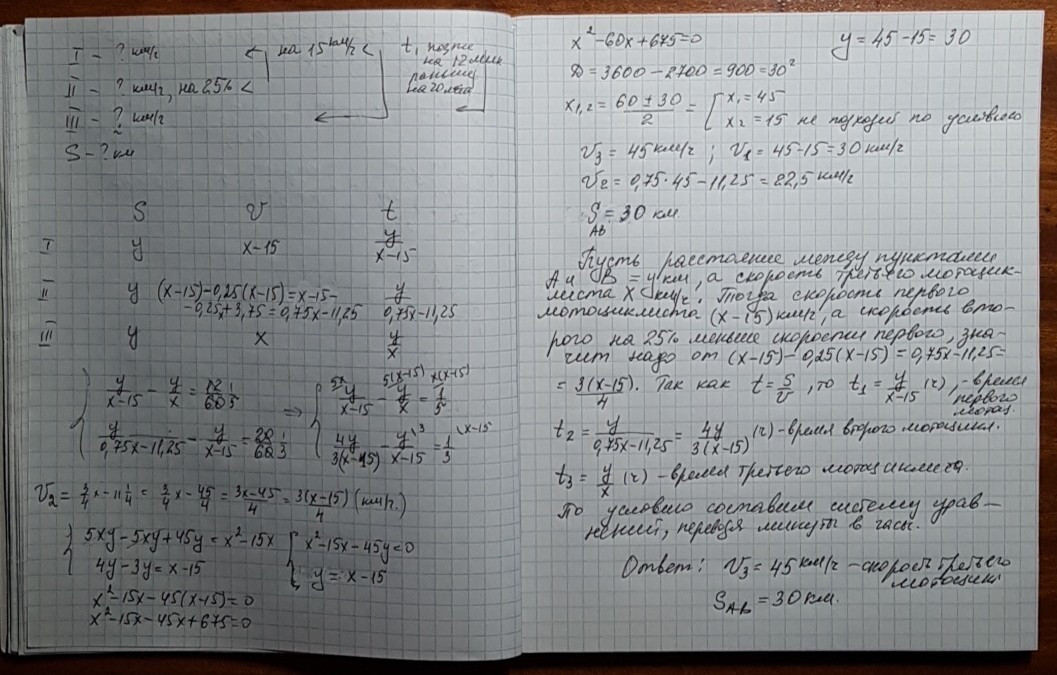 I - ? км/ч
на 15 км/ч <
t₁ позже
на 12 мин
раньше
на 20 мин
II - ? км/ч, на 25% <
III - ? км/ч
S - ? км
S V t
I y x-15 y/(x-15)
II y (x-15)-0,25(x-15)=x-15-
-0,25x+3,75=0,75x-11,25 y/(0,75x-11,25)
III y x y/x
y/(x-15) - y/x = 12/60 1/5 ⇒ 5x 5(x-15) x(x-15) y/(x-15) - y/x = 1/5
y/(0,75x-11,25) - y/(x-15) = 20/60 1/3 4y/(3(x-15)) - y\3/(x-15) = 1/3 \x-15
V₂ = 3/4x - 11 1/4 = 3/4x - 45/4 = (3x-45)/4 = 3(x-15)/4 (км/ч.)
5xy-5xy+45y=x²-15x x²-15x-45y=0
4y-3y=x-15 y=x-15
x²-15x-45(x-15)=0
x²-15x-45x+675=0
x²-60x+675=0 y=45-15=30
D=3600-2700=900=30²
x₁,₂=(60±30)/2= x₁=45
x₂=15 не подходит по условию
V₃=45 км/ч; V₁=45-15=30 км/ч
V₂=0,75·45-11,25=22,5 км/ч
S AB = 30 км
Пусть расстояние между пунктами
A и B = y км, а скорость третьего мотоцик-
листа x км/ч. Тогда скорость первого
мотоциклиста (x-15) км/ч, а скорость вто-
рого на 25% меньше скорости первого, зна-
чит надо от (x-15)-0,25(x-15)=0,75x-11,25=
=3(x-15)/4. Так как t=S/V, то t₁=y/(x-15) (ч), -время
первого
мотоц.
t₂=y/(0,75x-11,25)=4y/(3(x-15)) (ч)-время второго мотоцикл.
t₃=y/x (ч) -время третьего мотоциклиста.
По условию составим систему урав-
нений, переводя минуты в часы.
Ответ: V₃=45 км/ч -скорость третьего
мотоцикл
S AB = 30 км.